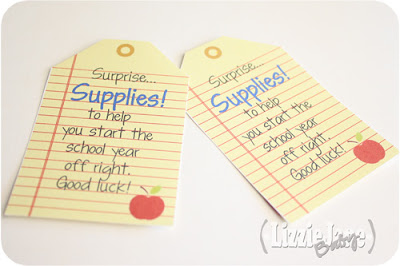 Surprise...
Supplies!
to help
you start the
school year
off right.
Good luck!
Surprise...
Supplies!
to help
you start the
school year
off right.
Good luck!
Lizzie Jane